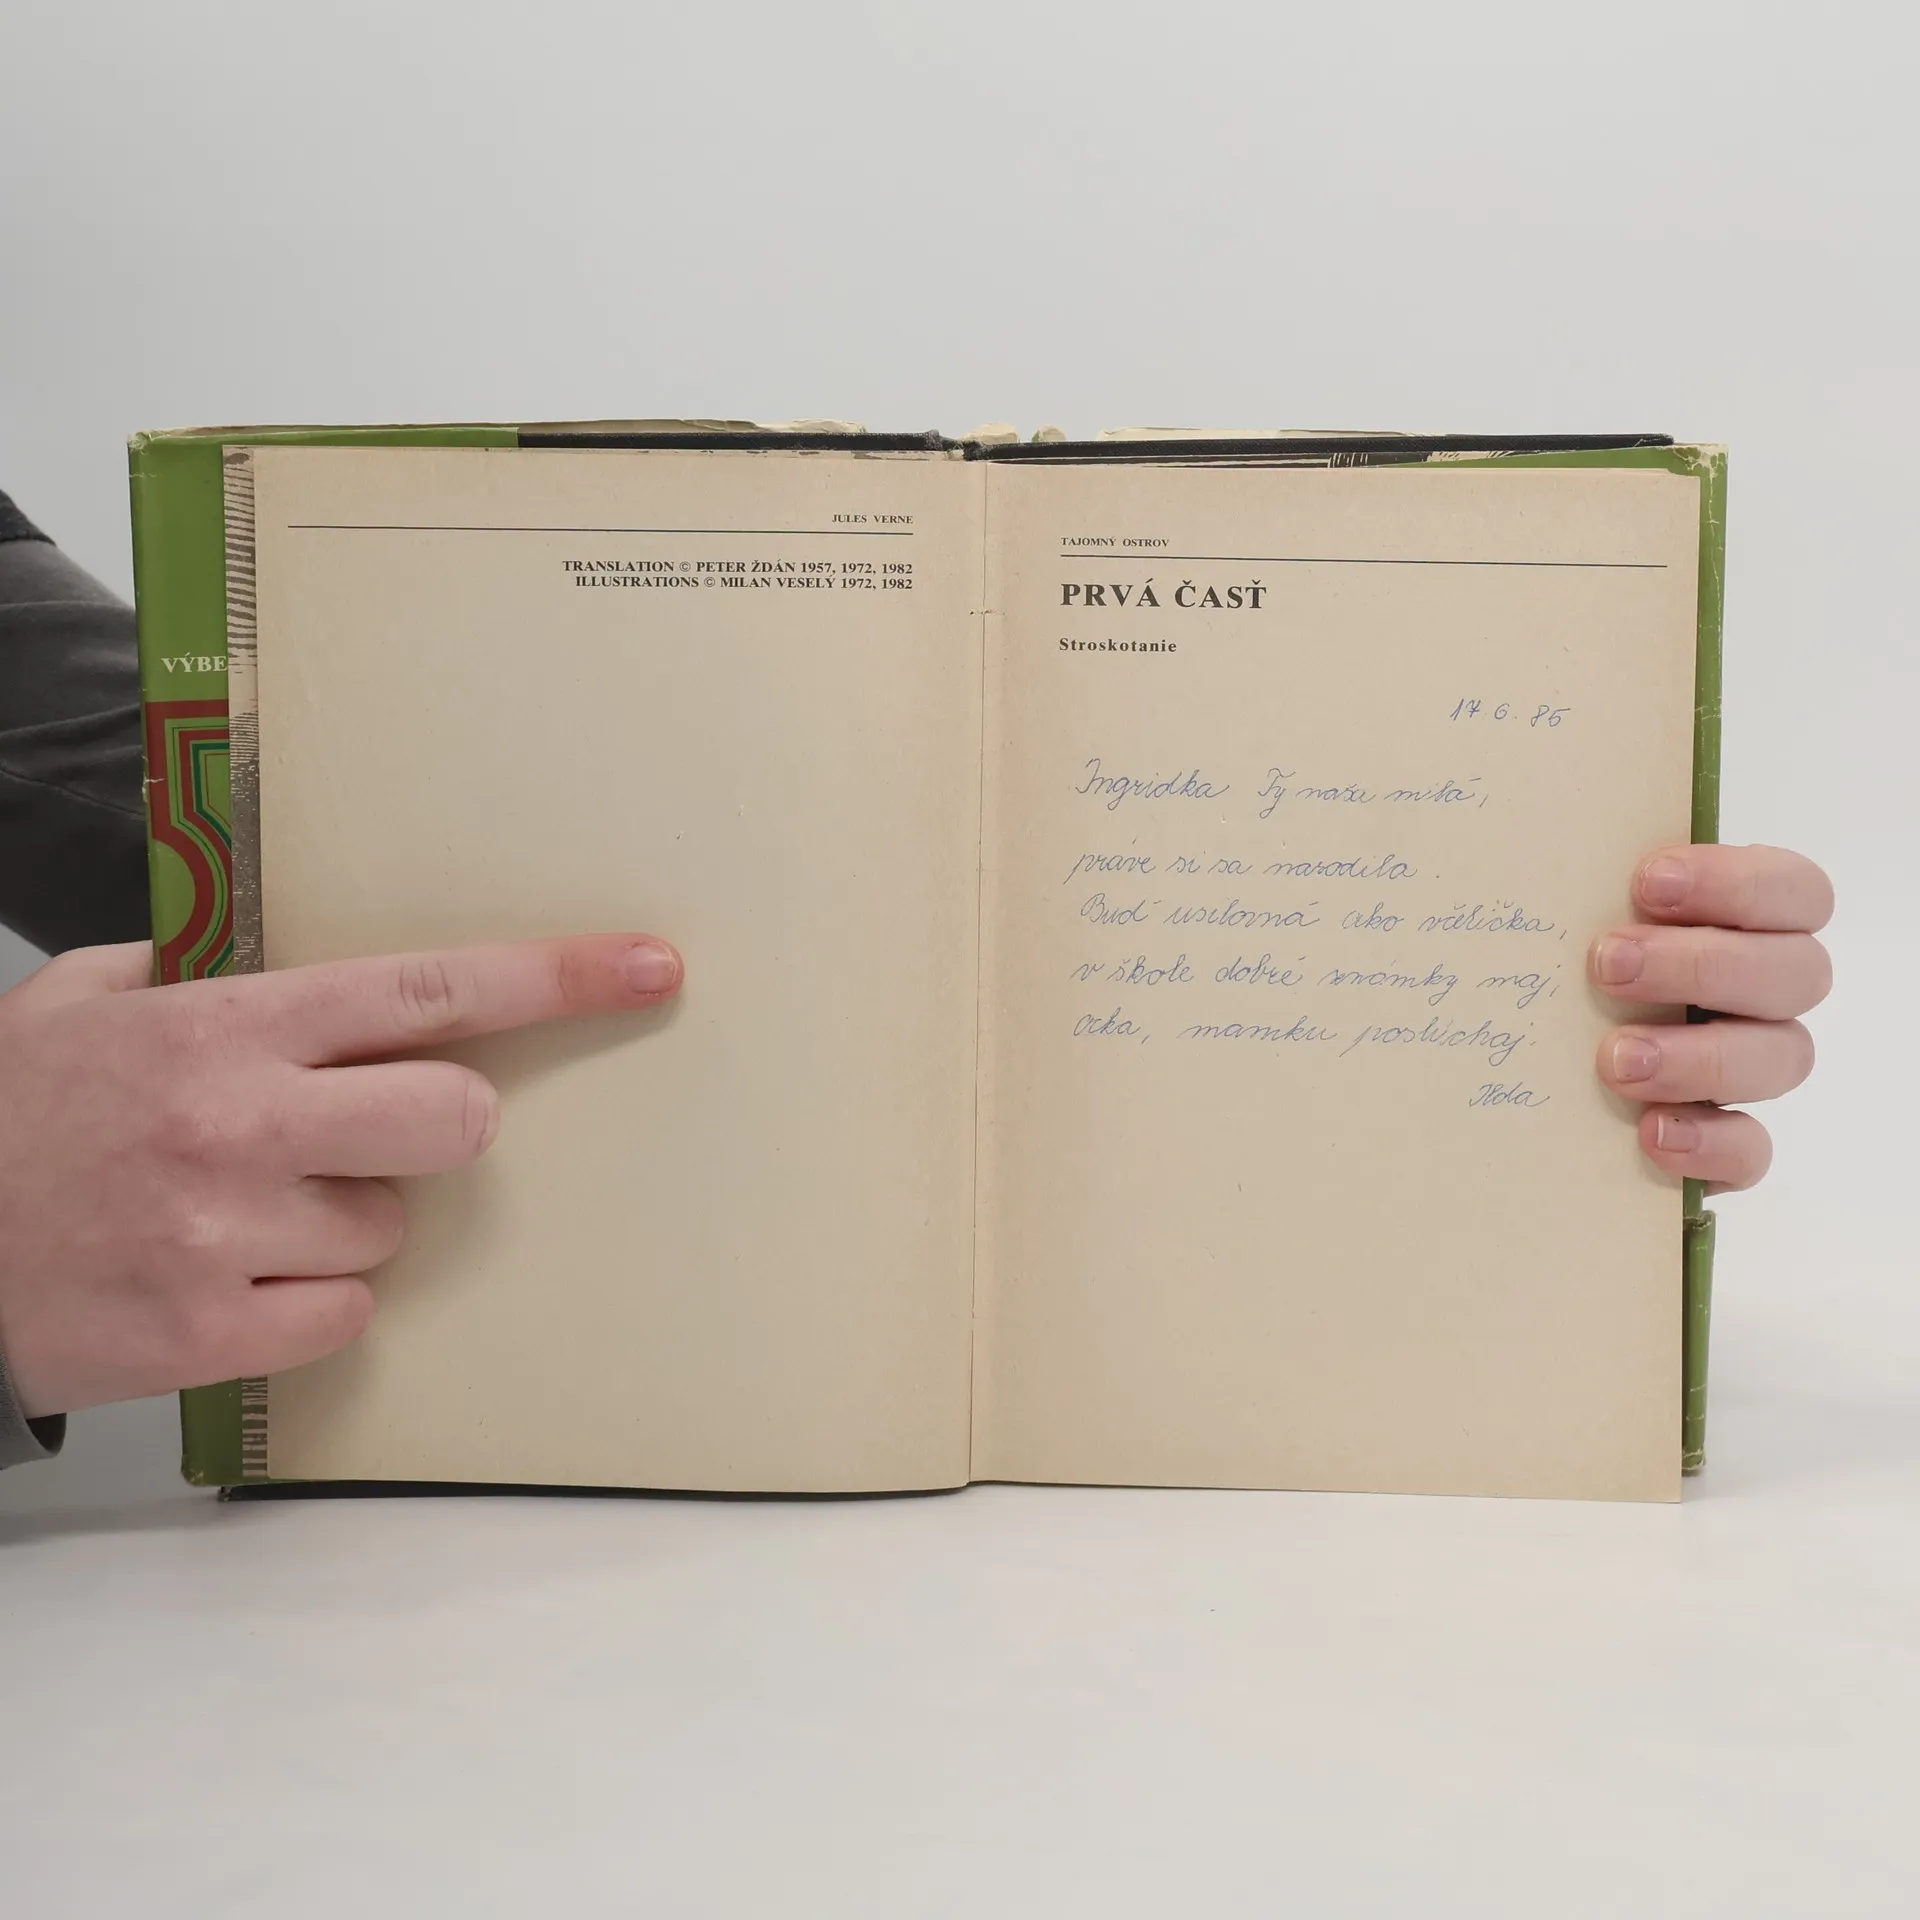 VÝBE
JULES VERNE
TRANSLATION © PETER ŽDÁN 1957, 1972, 1982
ILLUSTRATIONS © MILAN VESELÝ 1972, 1982
TAJOMNÝ OSTROV
PRVÁ ČASŤ
Stroskotanie
17. 6. 85
Ingridka Ty naša milá,
práve si sa narodila.
Buď usilovná ako včelička,
v škole dobré známky maj,
ocka, mamku poslúchaj.